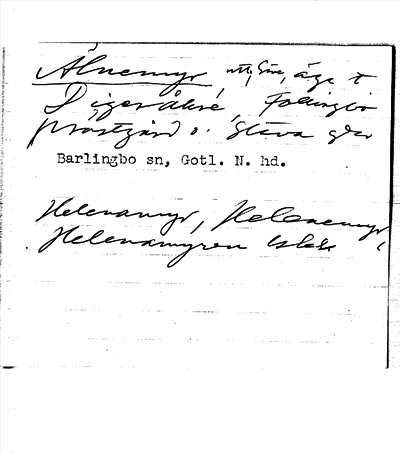 Ålnemyr, äga t
Digeråkre, Follingbo
prästgård o. Stava
Barlingbo sn, Gotl. N. hd.
Helenamyr, Helenemyr,
Helenamyren